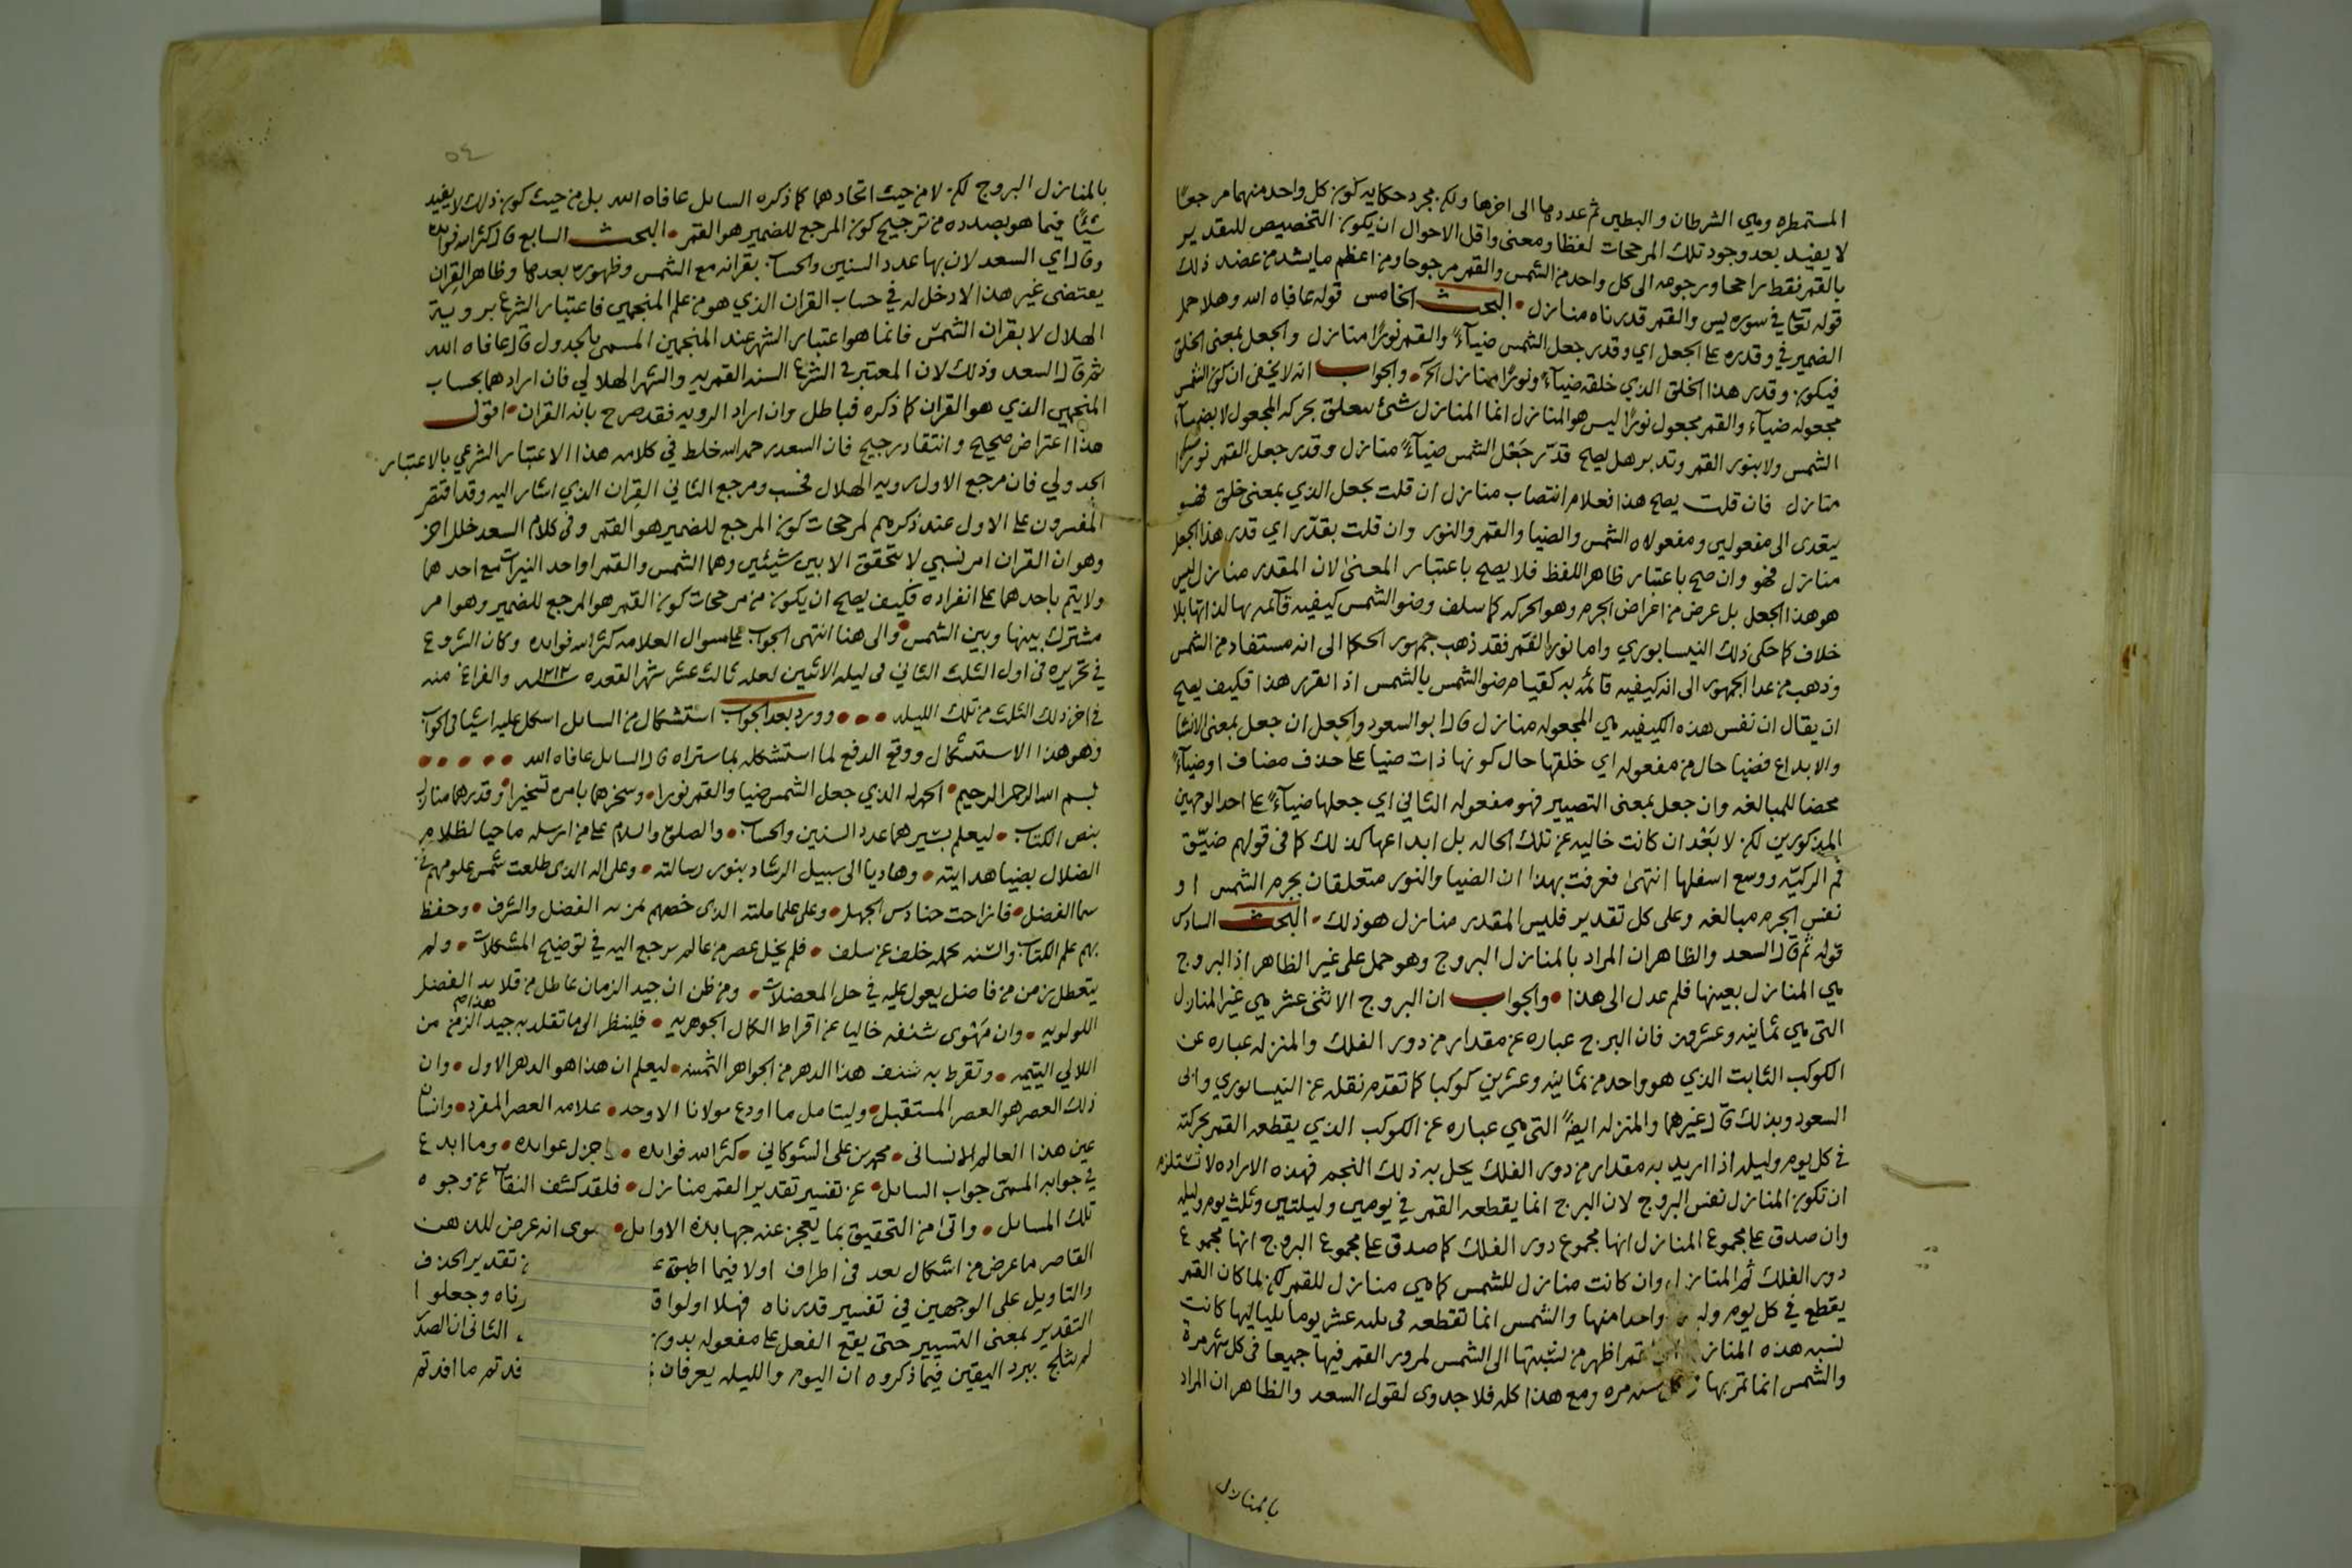 المستمطره وهي الشرطان والبطين ثم عددها الى اخرها ولكن مجرد حكايه كون كل واحد منهما مرجعًا
لا يفيد بعد وجود تلك المرجحات لفظا ومعنى واقل الاحوال ان يكون التخصيص للتقدير
بالقمر فقط راجحا ورجوعه الى كل واحد من الشمس والقمر مرجوحا ومن اعظم ما يشد من عضد ذلك
قوله تعالى في سوره يس والقمر قدرناه منازل • البحث الخامس قوله عافاه الله وهلا حمل
الضمير في وقدره على الجعل اي وقدر جعل الشمس ضيآءً والقمر نورًا منازل والجعل بمعنى الخلق
فيكون وقدر هذا الخلق الذي خلقه ضيآءً ونورًا منازل الخ • والجواب انه لا يخفى ان كون الشمس
مجعوله ضيآء والقمر مجعول نورًا ليس هو المنازل انما المنازل شئ يتعلق بحركه المجعول لا بضيآء
الشمس ولا بنور القمر وتدبر هل يصح قدّر جَعْل الشمس ضيآءً منازل وقدر جعل القمر نورًا
منازل فان قلت يصح هذا فعلام انتصاب منازل ان قلت بجعل الذي بمعنى خلق فهو
يتعدى الى مفعولين ومفعولاه الشمس والضيا والقمر والنور وان قلت بقدّر اي قدر هذا الجعل
منازل فهو وان صح باعتبار ظاهر اللفظ فلا يصح باعتبار المعنى لان المقدر منازل ليس
هو هذا الجعل بل عرض من اعراض الجرم وهو الحركه كما سلف وضو الشمس كيفيه قائمه بها لذاتها بلا
خلاف كما حكى ذلك النيسابوري واما نور القمر فقد ذهب جمهور الحكما الى انه مستفاد من الشمس
وذهب من عدا الجمهور الى انه كيفيه قائمه به كقيام ضو الشمس بالشمس اذا تقرر هذا فكيف يصح
ان يقال ان نفس هذه الكيفيه هي المجعوله منازل قال ابو السعود والجعل ان جعل بمعنى الانشا
والابداع فضيا حال من مفعوله اي خلقها حال كونها ذات ضيا على حذف مضاف او ضيآءً
محضا للمبالغه وان جعل بمعنى التصيير فهو مفعوله الثاني اي جعلها ضيآءً على احد الوجهين
المذكورين لكن لا بَعْد ان كانت خاليه عن تلك الحاله بل ابداعها كذلك كما في قولهم ضيّق
فم الركيّه ووسع اسفلها انتهى فعرفت بهذا ان الضيا والنور متعلقان بجرم الشمس او
نفس الجرم مبالغه وعلى كل تقدير فليس المقدر منازل هو ذلك • البحث السادس
قوله ثم قال السعد والظاهر ان المراد بالمنازل البروج وهو حمل على غير الظاهر اذ البروج
هي المنازل بعينها فلم عدل الى هذا • والجواب ان البروج الاثنى عشر هي غير المنازل
التي هي ثمانيه وعشرون فان البرج عباره عن مقدار من دور الفلك والمنزله عباره عن
الكوكب الثابت الذي هو واحد من ثمانيه وعشرين كوكبا كما تقدم نقله عن النيسابوري وابى
السعود وبذلك قال غيرهما والمنزله ايضًا التي هي عباره عن الكوكب الذي يقطعه القمر بحركته
في كل يوم وليله اذا اريد به مقدار من دور الفلك يحل به ذلك النجم فهذه الاراده لا تستلزم
ان تكون المنازل نفس البروج لان البرج انما يقطعه القمر في يومين وليلتين وثلث يوم وليله
وان صدق على مجموع المنازل انها مجموع دور الفلك كما صدق على مجموع البروج انها مجموع
دور الفلك ثم المنازل وان كانت منازل للشمس كما هي منازل للقمر لكن لما كان القمر
يقطع في كل يوم واحدا منها والشمس انما تقطعه في ثلثه عشر يوما بلياليها كانت
نسبه هذه المنازل اظهر من نسبتها الى الشمس لمرور القمر فيها جميعا في كل شهر مرة
والشمس انما تمر بها سنه مره ومع هذا كله فلا جدوى لقول السعد والظاهر ان المراد
بالمنازل
٥٤
بالمنازل البروج لكن لا من حيث اتحادهما كما ذكره السايل عافاه الله بل من حيث كون ذلك لا يفيد
شيئًا فيما هو بصدده من ترجيح كون المرجع للضمير هو القمر • البحث السابع قال كثر الله فوايده
وقال اي السعد لان بها عدد السنين والحساب بقرانه مع الشمس وظهوره بعدها وظاهر القران
يقتضى غير هذا اذ لا دخل له في حساب القران الذي هو من علم المنجمين فاعتبار الشرع برويه
الهلال لا بقران الشمس فانما هو اعتبار الشهر عند المنجمين المسمى بالجدول قال عافاه الله
ثم قال السعد وذلك لان المعتبر في الشرع السنه القمريه والشهر الهلالي فان ارادهما بحساب
المنجمين الذي هو القران كما ذكره فباطل وان اراد الرويه فقد صرح بانه القران • اقول
هذا اعتراض صحيح وانتقاد رجيح فان السعد رحمه الله خلط في كلامه هذا الاعتبار الشرعي بالاعتبار
الجدولي فان مرجع الاول رويه الهلال فحسب ومرجع الثاني القِران الذي اشار اليه وقد اقتصر
المفسرون على الاول عند ذكرهم لمرجحات كون المرجع للضمير هو القمر وفي كلام السعد خلل اخر
وهو ان القران امر نسبي لا يتحقق الا بين شيئين وهما الشمس والقمر او احد النيرات مع احدهما
ولا يتم باحدهما على انفراده فكيف يصلح ان يكون من مرجحات كون القمر هو المرجع للضمير وهو امر
مشترك بينها وبين الشمس • والى هنا انتهى الجواب على سوال العلامه كثر الله فوايده وكان الشروع
في تحريره في اول الثلث الثاني في ليله الاثنين لعله ثالث عشر شهر القعده سنه ١٢١٣ والفراغ منه
في اخر ذلك الثلث من تلك الليله • • • وورد بعد الجواب استشكال من السايل اشكل عليه اشيا في الجواب
وهو هذا الاستشكال ووقع الدفع لما استشكله بما ستراه قال السايل عافاه الله • • • • •
بسم الله الرحمن الرحيم • الحمد لله الذي جعل الشمس ضيا والقمر نورا • وسخرهما بامره تسخيرا • وقدرهما منازل
بنص الكتاب • ليعلم بسيرهما عدد السنين والحساب • والصلوه والسلام على من ارسله ماحيا لظلام
الضلال بضيا هدايته • وهاديا الى سبيل الرشاد بنور رسالته • وعلى اله الذي طلعت شمس علومهم في
سما الفضل • فانزاحت حنادس الجهل • وعلى علما ملته الذي خصهم بمزيه الفضل والشرف • وحفظ
بهم علم الكتاب والسنه يحمله خلف عن سلف • فلم يخل عصر من عالم يرجع اليه في توضيح المشكلات • ولم
يتعطل زمن من فاضل يعول عليه في حل المعضلات • ومن ظن ان جيد الزمان عاطل من قلايد الفضل
اللولويه • وان مَهْوى شنفه خاليا عن اقراط الكمال الجوهريه • فلينظر الى ما تقلد به جيد هذا الزمن من
اللالي اليتيمه • وتقرط به شنف هذا الدهر من الجواهر الثمينه • ليعلم ان هذا هو الدهر الاول • وان
ذلك العصر هو العصر المستقبل • وليتامل ما اودع مولانا الاوحد • علامه العصر المفرد • وانسان
عين هذا العالم الانسانى • محمد بن على الشوكاني • كثر الله فوايده • واجزل عوايده • وما ابدع
في جوابه المسمّى جواب السايل • عن تفسير تقدير القمر منازل • فلقد كشف النقاب عن وجوه
تلك المسايل • واتى من التحقيق بما يعجز عنه جهابذه الاوايل • سوى انه عرض للذهن
القاصر ما عرض من اشكال بعد في اطراف اولا فيما اطبق تقدير الحذف
والتاويل على الوجهين في تفسير قدرناه فهلا اولوا رناه وجعلوا
التقدير بمعنى التسيير حتى يقع الفعل على مفعوله بدون الثاني ان الصدر
لم يثلج ببرد اليقين فيما ذكروه ان اليوم والليله يعرفان قدتم ما افدتم